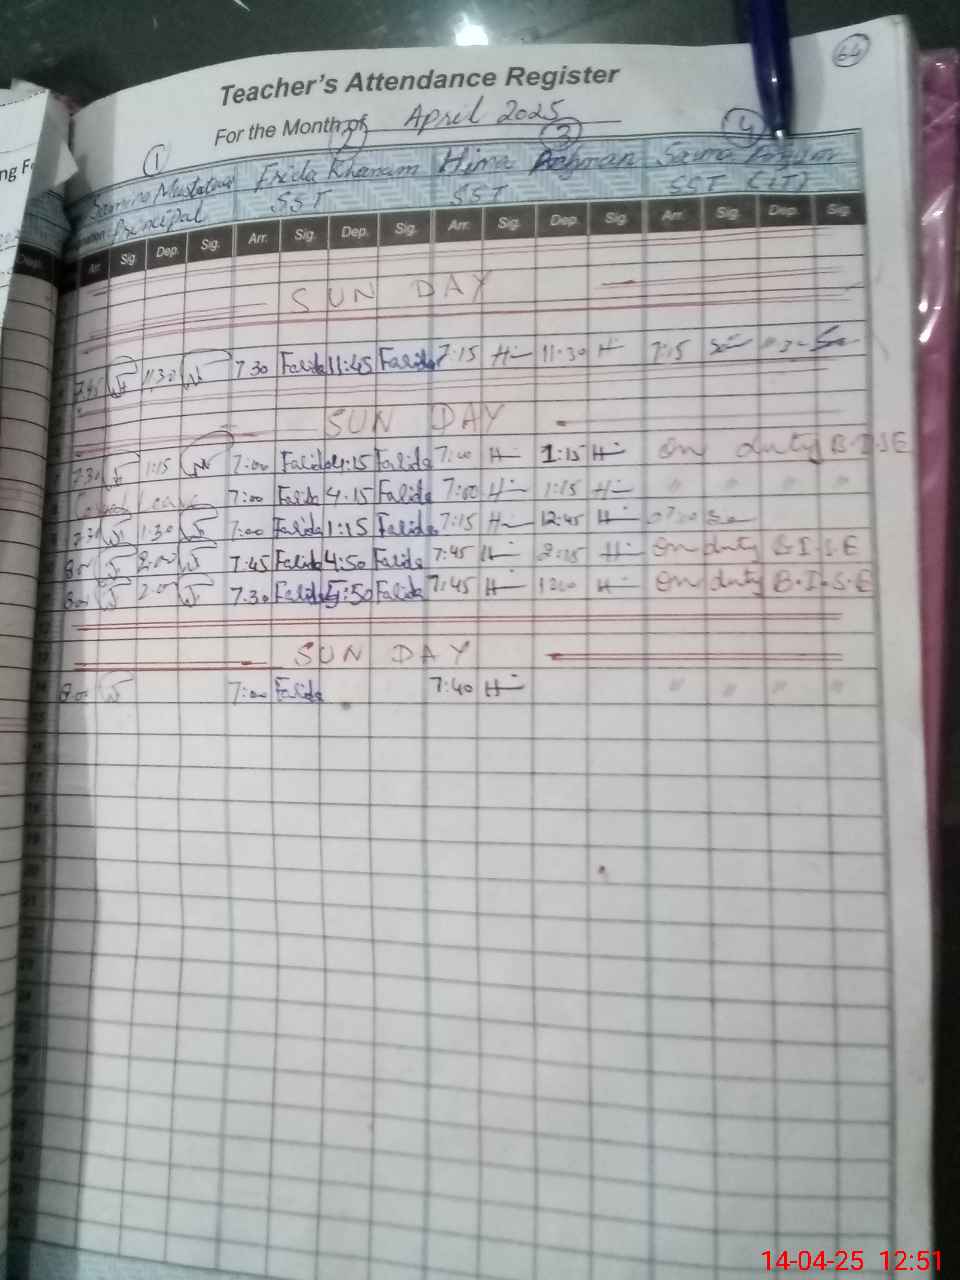 64
Teacher's Attendance Register
For the Month of April 2025
1 2 3 4
Samina Mustafa Frida Khanam Hima Rehman Saima
Principal SST SST SST (IT)
Arr. Sig. Dep. Sig. Arr. Sig. Dep. Sig. Arr. Sig. Dep. Sig. Arr. Sig. Dep. Sig.
SUN DAY
11:30 7.30 Falida 11:45 Falida 7:15 H 11:30 H 7:15
SUN DAY
7:30 1:15 7:00 Falida 4:15 Falida 7:00 H 1:15 H On duty B.I.S.E
Leave 7:00 Falida 4.15 Falida 7:00 H 1:15 H " " " "
7:30 1:30 7:00 Falida 1:15 Falida 7:15 H 12:45 H
8:00 2:00 7.45 Falida 4:50 Falida 7:45 H 2:15 H On duty B.I.S.E
8:00 2:00 7.30 Falida 5:50 Falida 7:45 H H On duty B.I.S.E
SUN DAY
8:00 7:00 Falida 7:40 H " " " "
14-04-25 12:51